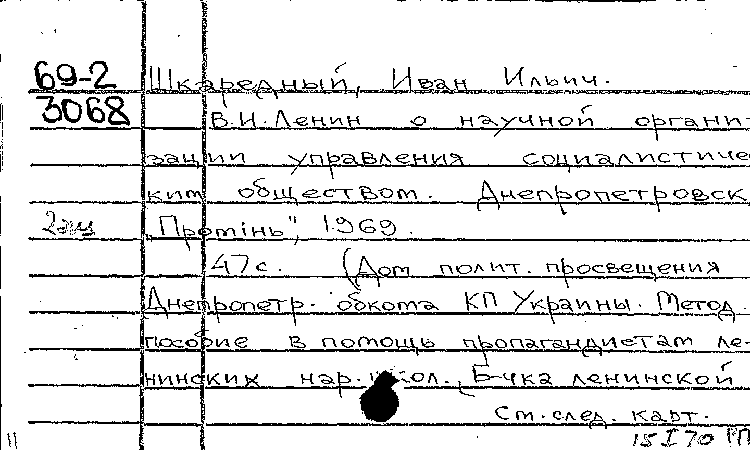 69-2 Шкаредный, Иван Ильич.
3068 В.И. Ленин о научной органи-
зации управления социалистичес-
ким обществом. Днепропетровск,
2экз „Промiнь", 1969.
47 с. (Дом полит. просвещения
Днепропетр. обкома КП Украины. Метод.
пособие в помощь пропагандистам ле-
нинских нар. школ. Б-чка ленинской
См. след. карт.
15 I 70